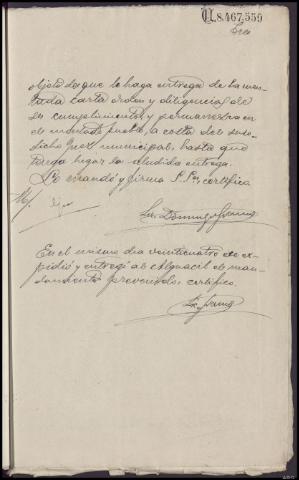 8.467,559
objeto de que le haga entrega de la men-
tada carta orden y diligencias de
su cumplimiento y permanezca en
el mentado pueblo, a costa del suso-
dicho Juez municipal, hasta que
tenga lugar la aludida entrega.
Lo mandó y firma S.Sª, certifico
En el mismo dia veinticuatro se ex-
pidió y entregó al Alguacil el man-
damiento prevenido, certifico.